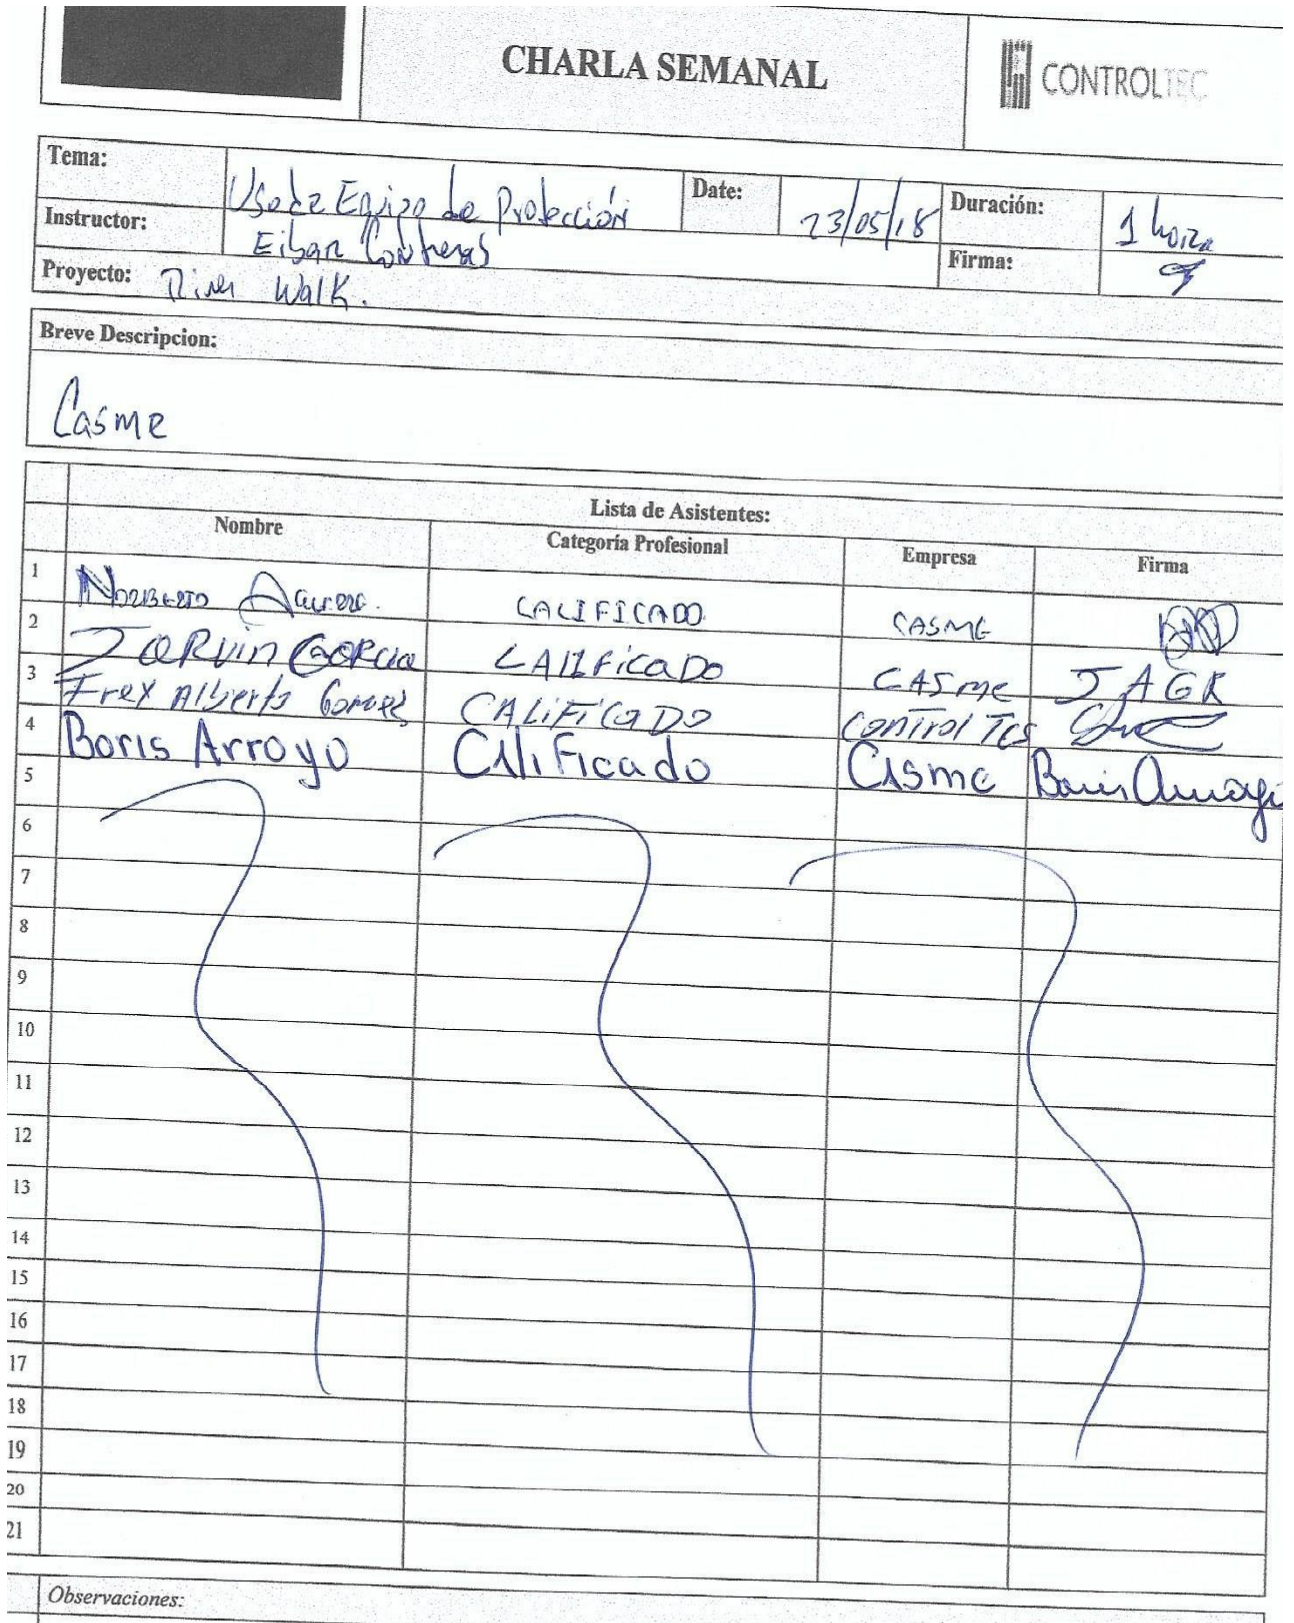 CHARLA SEMANAL
CONTROLTEC
Tema: Uso de Equipo de Protección Date: 23/05/18 Duración: 1 hora
Instructor: Eibar Contreras Firma:
Proyecto: River Walk.
Breve Descripcion:
Casme
Lista de Asistentes:
Nombre Categoría Profesional Empresa Firma
1 Norberto CALIFICADO CASME
2 JARVIN GARCIA CALIFICADO CASME JAGR
3 Frex Alberto Gomez CALIFICADO Control Tcs
4 Boris Arroyo Calificado Casme Boris Arroyo
5
6
7
8
9
10
11
12
13
14
15
16
17
18
19
20
21
Observaciones: